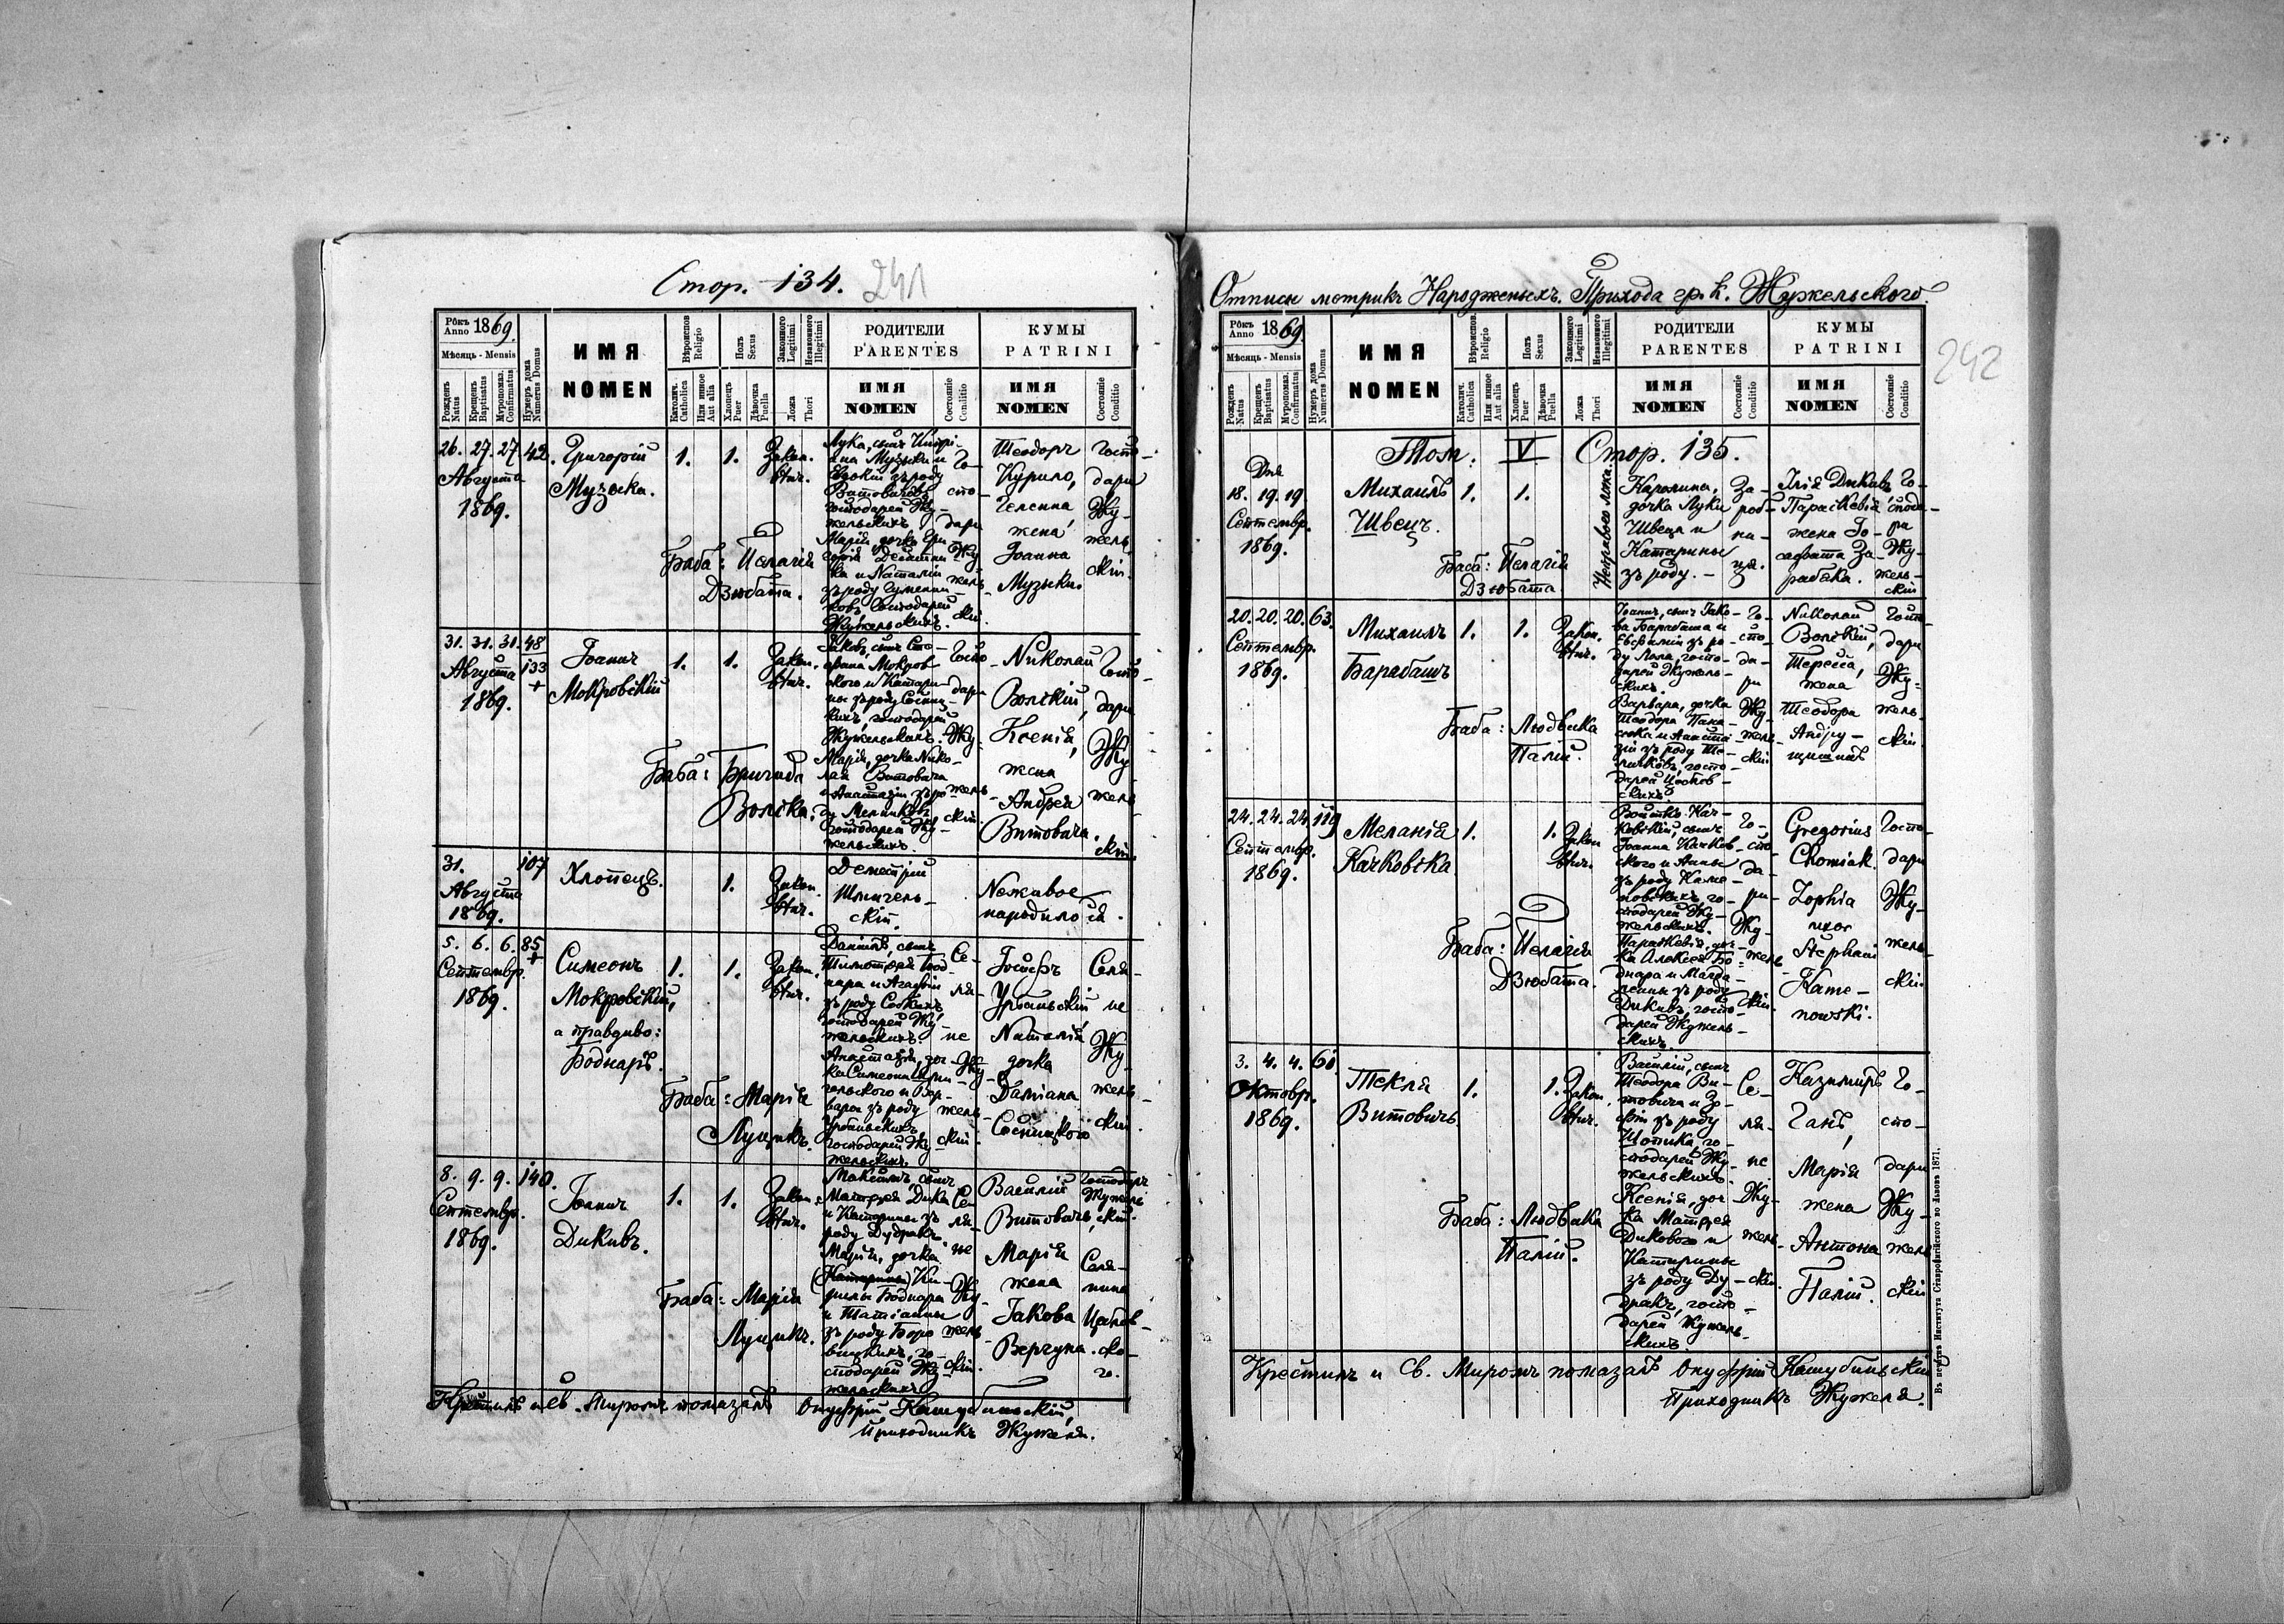 Стор. 134. 241
Рôкъ Anno 1869.
Мѣсяць - Mensis
Рожденъ Natus
Крещенъ Baptisatus
Мѵропомаз. Confirmatus
Нумеръ дома Numerus Domus
ИМЯ
NOMEN
Вѣроиспов. Religio
Католич. Catholica
Или иное Aut alia
Полъ Sexus
Хлопець Puer
Дѣвочка Puella
Законного Legitimi
Незаконного Illegitimi
Ложа Thori
РОДИТЕЛИ
PARENTES
ИМЯ
NOMEN
Состояніе Conditio
КУМЫ
PATRINI
ИМЯ
NOMEN
Состояніе Conditio
26. 27. 27. 42.
Августа
1869.
Григорій
Музыка.
1. 1. Закон.
Баба: Пелагія
Дзюбата.
Лука, сынъ
Музыки и
Евдокіи зъ роду
Витовичовъ
господарей Жу-
жельскихъ
Марія, дочка Гри-
горія
ка и Наталіи
зъ роду
господарей
Жужельскихъ.
Го-
спо-
дари
Жу-
жель-
скіи.
Теодоръ
Курило,
Гелена
жена
Іоанна
Музыки
Госпо-
дари
Жу-
жель-
скіи.
31. 31. 31. 48
133
+
Августа
1869.
Іоаннъ
Мокровскій
1. 1. Закон.
Баба: Бригида
Волска.
Яковъ, сынъ
Мокров-
ского и Катари-
ны зъ роду
господарей
Жужельскихъ.
Марія, дочка Нико-
лая Витовича
и Анастазіи зъ ро-
ду Мельниковъ
господарей Жу-
жельскихъ.
Госпо-
дари
Жу-
жель-
скіи.
Николай
Волскій,
Ксенія,
жена
Андрея
Витовича.
Госпо-
дари
Жу-
жель-
скіи.
31. 107
Августа
1869.
Хлопець.
1. Закон.
Деметрій
Шмигель-
скій.
Неживое
народилося.
5. 6. 6. 85
+
Септемвр.
1869.
Симеонъ
Мокровскій,
а правдиво:
Боднаръ.
1. 1. Закон.
Баба: Марія
Луцикъ.
Даніилъ, сынъ
Тимотея Бод-
нара и Агафіи
зъ роду
господарей Жу-
жельскихъ.
Анастазія, доч-
ка Симеона Шми-
гельского и Вар-
вары зъ роду
Урбаньскихъ
господарей Жу-
жельскихъ.
Се-
ля-
не
Жу-
жель-
скіи.
Іосифъ
Урбаньскій
Наталія,
дочка
Даміана
Сосницкого
Селя-
не
Жу-
жель-
скіи.
8. 9. 9. 140.
Септемвр.
1869.
Іоаннъ
Дикивъ.
1. 1. Закон.
Баба: Марія
Луцикъ.
Максимъ, сынъ
Матфея Дика
и Катарины зъ
роду Дудракъ.
Марія, дочка
(Катарины) Ки-
рилы Боднара
и Татіанны
зъ роду
го-
сподарей Жу-
жельскихъ.
Се-
ля-
не
Жу-
жель-
скіи.
Василій
Витовичъ,
Марія
жена
Іакова
Вергуна.
Господарь
Жужель-
скій.
Селя-
нина
Цебров-
ско-
го.
Крестилъ и св. Миромъ помазалъ Онуфрій Кашубиньскій,
Приходникъ Жужеля.
Отписи метрикъ Народженыхъ. Прихода гр. к. Жужельского.
242
Рôкъ Anno 1869.
Мѣсяць - Mensis
Рожденъ Natus
Крещенъ Baptisatus
Мѵропомаз. Confirmatus
Нумеръ дома Numerus Domus
ИМЯ
NOMEN
Вѣроиспов. Religio
Католич. Catholica
Или иное Aut alia
Полъ Sexus
Хлопець Puer
Дѣвочка Puella
Законного Legitimi
Незаконного Illegitimi
Ложа Thori
РОДИТЕЛИ
PARENTES
ИМЯ
NOMEN
Состояніе Conditio
КУМЫ
PATRINI
ИМЯ
NOMEN
Состояніе Conditio
Том. V Стор. 135.
Дня
18. 19. 19.
Септемвр.
1869.
Михаилъ
Швець.
1. 1.
Неправого ложа.
Баба: Пелагія
Дзюбата
Каролина,
дочка Луки
Швеца и
Катарины
зъ роду. -
За-
роб-
ни-
ця.
Ілія Дикивъ
Параскевія
жена Іо-
сафата За-
рабяка.
Го-
спода-
ри
Жу-
жель-
скіи
20. 20. 20. 63.
Септемвр.
1869.
Михаилъ
Барабашъ
1. 1. Закон.
Баба: Людвика
Палій.
Іоаннъ, сынъ Іако-
ва Барабаша и
Евфиміи зъ ро-
ду госпо-
дарей Жужель-
скихъ.
Варвара, дочка
Теодора
и Анаста-
зіи зъ роду
госпо-
дарей
скихъ
Го-
спо-
да-
ри
Жу-
жель-
скіи
Николай
Волскій,
Тересса,
жена
Теодора
Андру-
щишинъ
Госпо-
дари
Жу-
жель-
скіи.
24. 24. 24. 119
Септемвр.
1869.
Меланія
Качковска.
1. 1. Закон.
Баба: Пелагія
Дзюбата.
Войтко Кач-
ковскій, сынъ
Іоанна Качков-
ского и Анны
зъ роду Каме-
новскихъ, го-
сподарей Жу-
жельскихъ.
Параскевія, доч-
ка Алексея Бо-
днара и Магда-
лены зъ роду
Дикивъ, госпо-
дарей Жужель-
скихъ.
Го-
спо-
да-
ри
Жу-
жель-
скіи.
Gregorius
Chomiak
Zophia
uxor
Stephani
Kame-
nowski.
Госпо-
дари
Жу-
жель-
скіи.
3. 4. 4. 61.
Октовр.
1869.
Текля
Витовичъ.
1. 1. Закон.
Баба: Людвика
Палій.
Василій, сынъ
Теодора Ви-
товича и Зо-
фіи зъ роду
го-
сподарей Жу-
жельскихъ.
Ксенія, доч-
ка Матфея
Дикового и
Катарины
зъ роду Ду-
дракъ, госпо-
дарей Жужель-
скихъ.
Се-
ля-
не
Жу-
жель-
скіи.
Казимиръ
Ганъ,
Марія
жена
Антона
Палій.
Го-
спо-
дари
Жу-
жель-
скіи
Крестилъ и Св. Миромъ помазалъ Онуфрій Кашубиньскій
Приходникъ Жужеля.
Въ печатнѣ Института Ставропигійского во Львовѣ 1871.